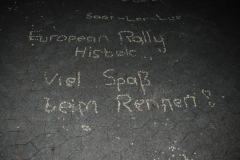 Saar-Lor-Lux
European Rally
Historic
Viel Spaß
beim Rennen!